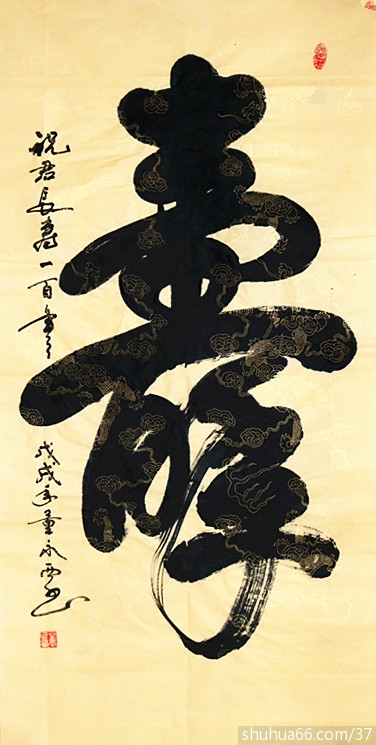 壽
祝君長壽一百
戊戌年董永
shuhua66.com/37